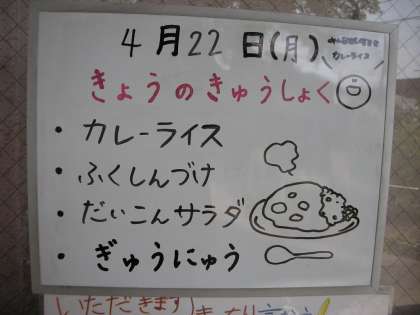 4月22日(月)
きょうのきゅうしょく
カレーライス
・カレーライス
・ふくしんづけ
・だいこんサラダ
・ぎゅうにゅう
いただきます